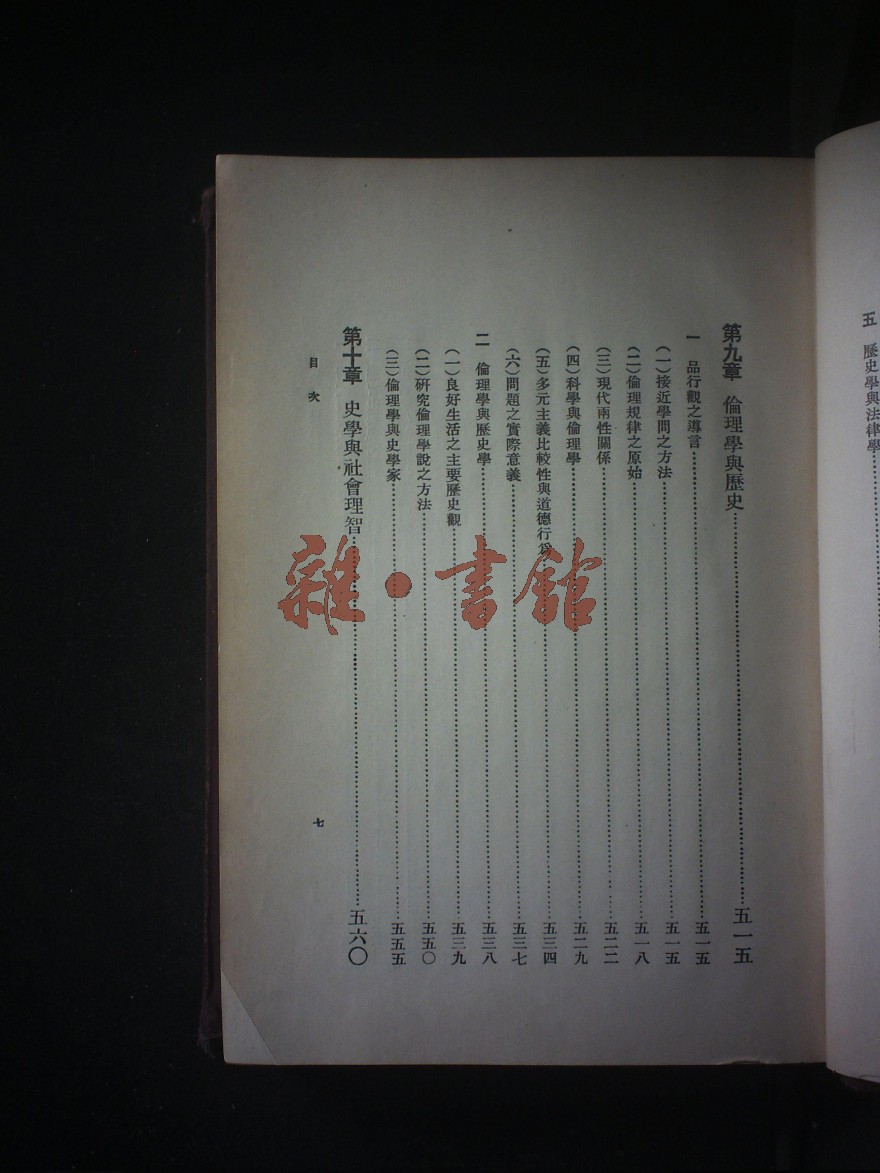 五 歷史學與法律學
第九章 倫理學與歷史……五一五
一 品行觀之導言……五一五
(一)接近學問之方法……五一五
(二)倫理規律之原始……五一八
(三)現代兩性關係……五二二
(四)科學與倫理學……五二九
(五)多元主義比較性與道德行爲……五三四
(六)問題之實際意義……五三七
二 倫理學與歷史學……五三八
(一)良好生活之主要歷史觀……五三九
(二)研究倫理學說之方法……五五〇
(三)倫理學與史學家……五五五
第十章 史學與社會理智……五六〇
目次
七
雜·書館